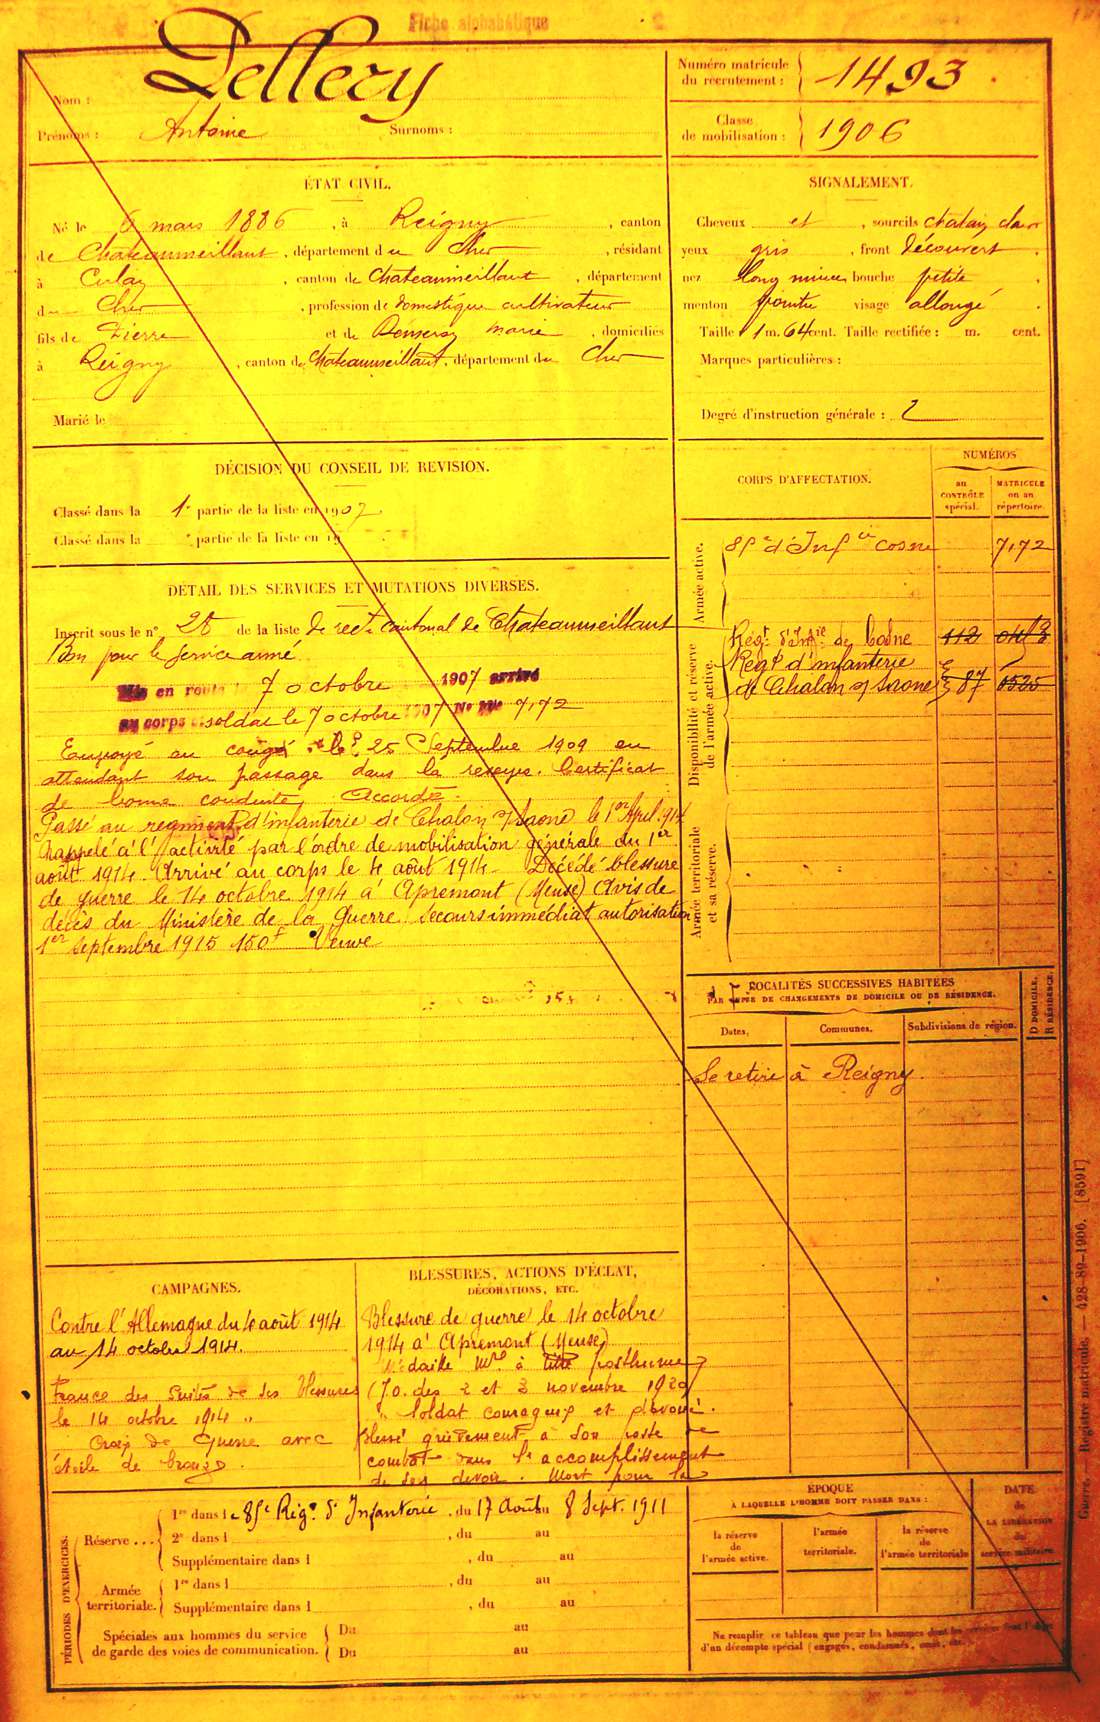 Fiche alphabétique
Nom : Pellery
Prénoms : Antoine Surnoms :
Numéro matricule
du recrutement : 1493
Classe
de mobilisation : 1906
ÉTAT CIVIL.
Né le 6 mars 1886, à Reigny, canton
de Chateaumeillant, département du Cher, résidant
à Culan, canton de Chateaumeillant, département
du Cher, profession de domestique cultivateur
fils de Pierre et de Marie, domiciliés
à Reigny, canton de Chateaumeillant, département du Cher
Marié le
SIGNALEMENT.
Cheveux et, sourcils chatain clair
yeux gris, front découvert
nez long mince, bouche petite
menton pointu visage allongé
Taille 1 m. 64 cent. Taille rectifiée : m. cent.
Marques particulières :
Degré d'instruction générale : 2
DÉCISION DU CONSEIL DE REVISION.
Classé dans la 1e partie de la liste en 1907
Classé dans la e partie de la liste en 19
DÉTAIL DES SERVICES ET MUTATIONS DIVERSES.
Inscrit sous le n° 28 de la liste de rect. cantonal de Chateaumeillant
Bon pour le service armé
Mis en route le 7 octobre 1907 arrivé
au corps et soldat le 7 octobre 1907 No Mle 7172
Envoyé en congé le 25 Septembre 1909 en
attendant son passage dans la reserve. Certificat
de bonne conduite Accordé.
Passé au regiment d'infanterie de Chalon s/Saone le 1er Avril 914
Rappelé à l'activité par l'ordre de mobilisation générale du 1er
août 1914 Arrivé au corps le 4 août 1914 Décédé blessure
de guerre le 14 octobre 1914 à Apremont (Meuse) Avis de
décès du Ministère de la Guerre. Secours immédiat autorisation
1er septembre 1915 150f Veuve
CORPS D'AFFECTATION.
NUMÉROS
au
CONTRÔLE
spécial.
MATRICULE
ou au
répertoire.
Armée active.
85e d'Infie Cosne 7172
Disponibilité et réserve
de l'armée active.
Régt d'Infie de Cosne 112
Régt d'infanterie
de Chalon s/ Saone 87 0525
Armée territoriale
et sa réserve.
LOCALITÉS SUCCESSIVES HABITÉES
PAR SUITE DE CHANGEMENTS DE DOMICILE OU DE RÉSIDENCE.
Dates. Communes. Subdivisions de région. D DOMICILE. R RÉSIDENCE.
Se retire à Reigny
CAMPAGNES.
Contre l'Allemagne du 4 août 1914
au 14 octobre 1914.
France des suites de ses blessures
le 14 octobre 1914 "
Croix de Guerre avec
étoile de bronze.
BLESSURES, ACTIONS D'ÉCLAT,
DÉCORATIONS, ETC.
Blessure de guerre le 14 octobre
1914 à Apremont (Meuse)
Médaille Mre à titre posthume
(JO. des 2 et 3 novembre 1920)
" Soldat courageux et dévoué.
Blessé grièvement à son poste de
combat dans l'accomplissement
de ses devoir. Mort pour la
PÉRIODES D'EXERCICES.
Réserve ... 1re dans le 85e Régt d'Infanterie, du 17 Août au 8 Sept. 1911
2e dans l, du au
Supplémentaire dans l, du au
Armée
territoriale. 1re dans l, du au
Supplémentaire dans l, du au
Spéciales aux hommes du service
de garde des voies de communication. Du au
Du au
ÉPOQUE
À LAQUELLE L'HOMME DOIT PASSER DANS :
la réserve
de
l'armée active.
l'armée
territoriale.
la réserve
de
l'armée territoriale
DATE
de
LA LIBÉRATION
du
service militaire.
Ne remplir ce tableau que pour les hommes dont les services font l'objet
d'un décompte spécial (engagés, condamnés, omis, etc.
Guerre. — Registre matricule. — 428-89-1906. [8591]